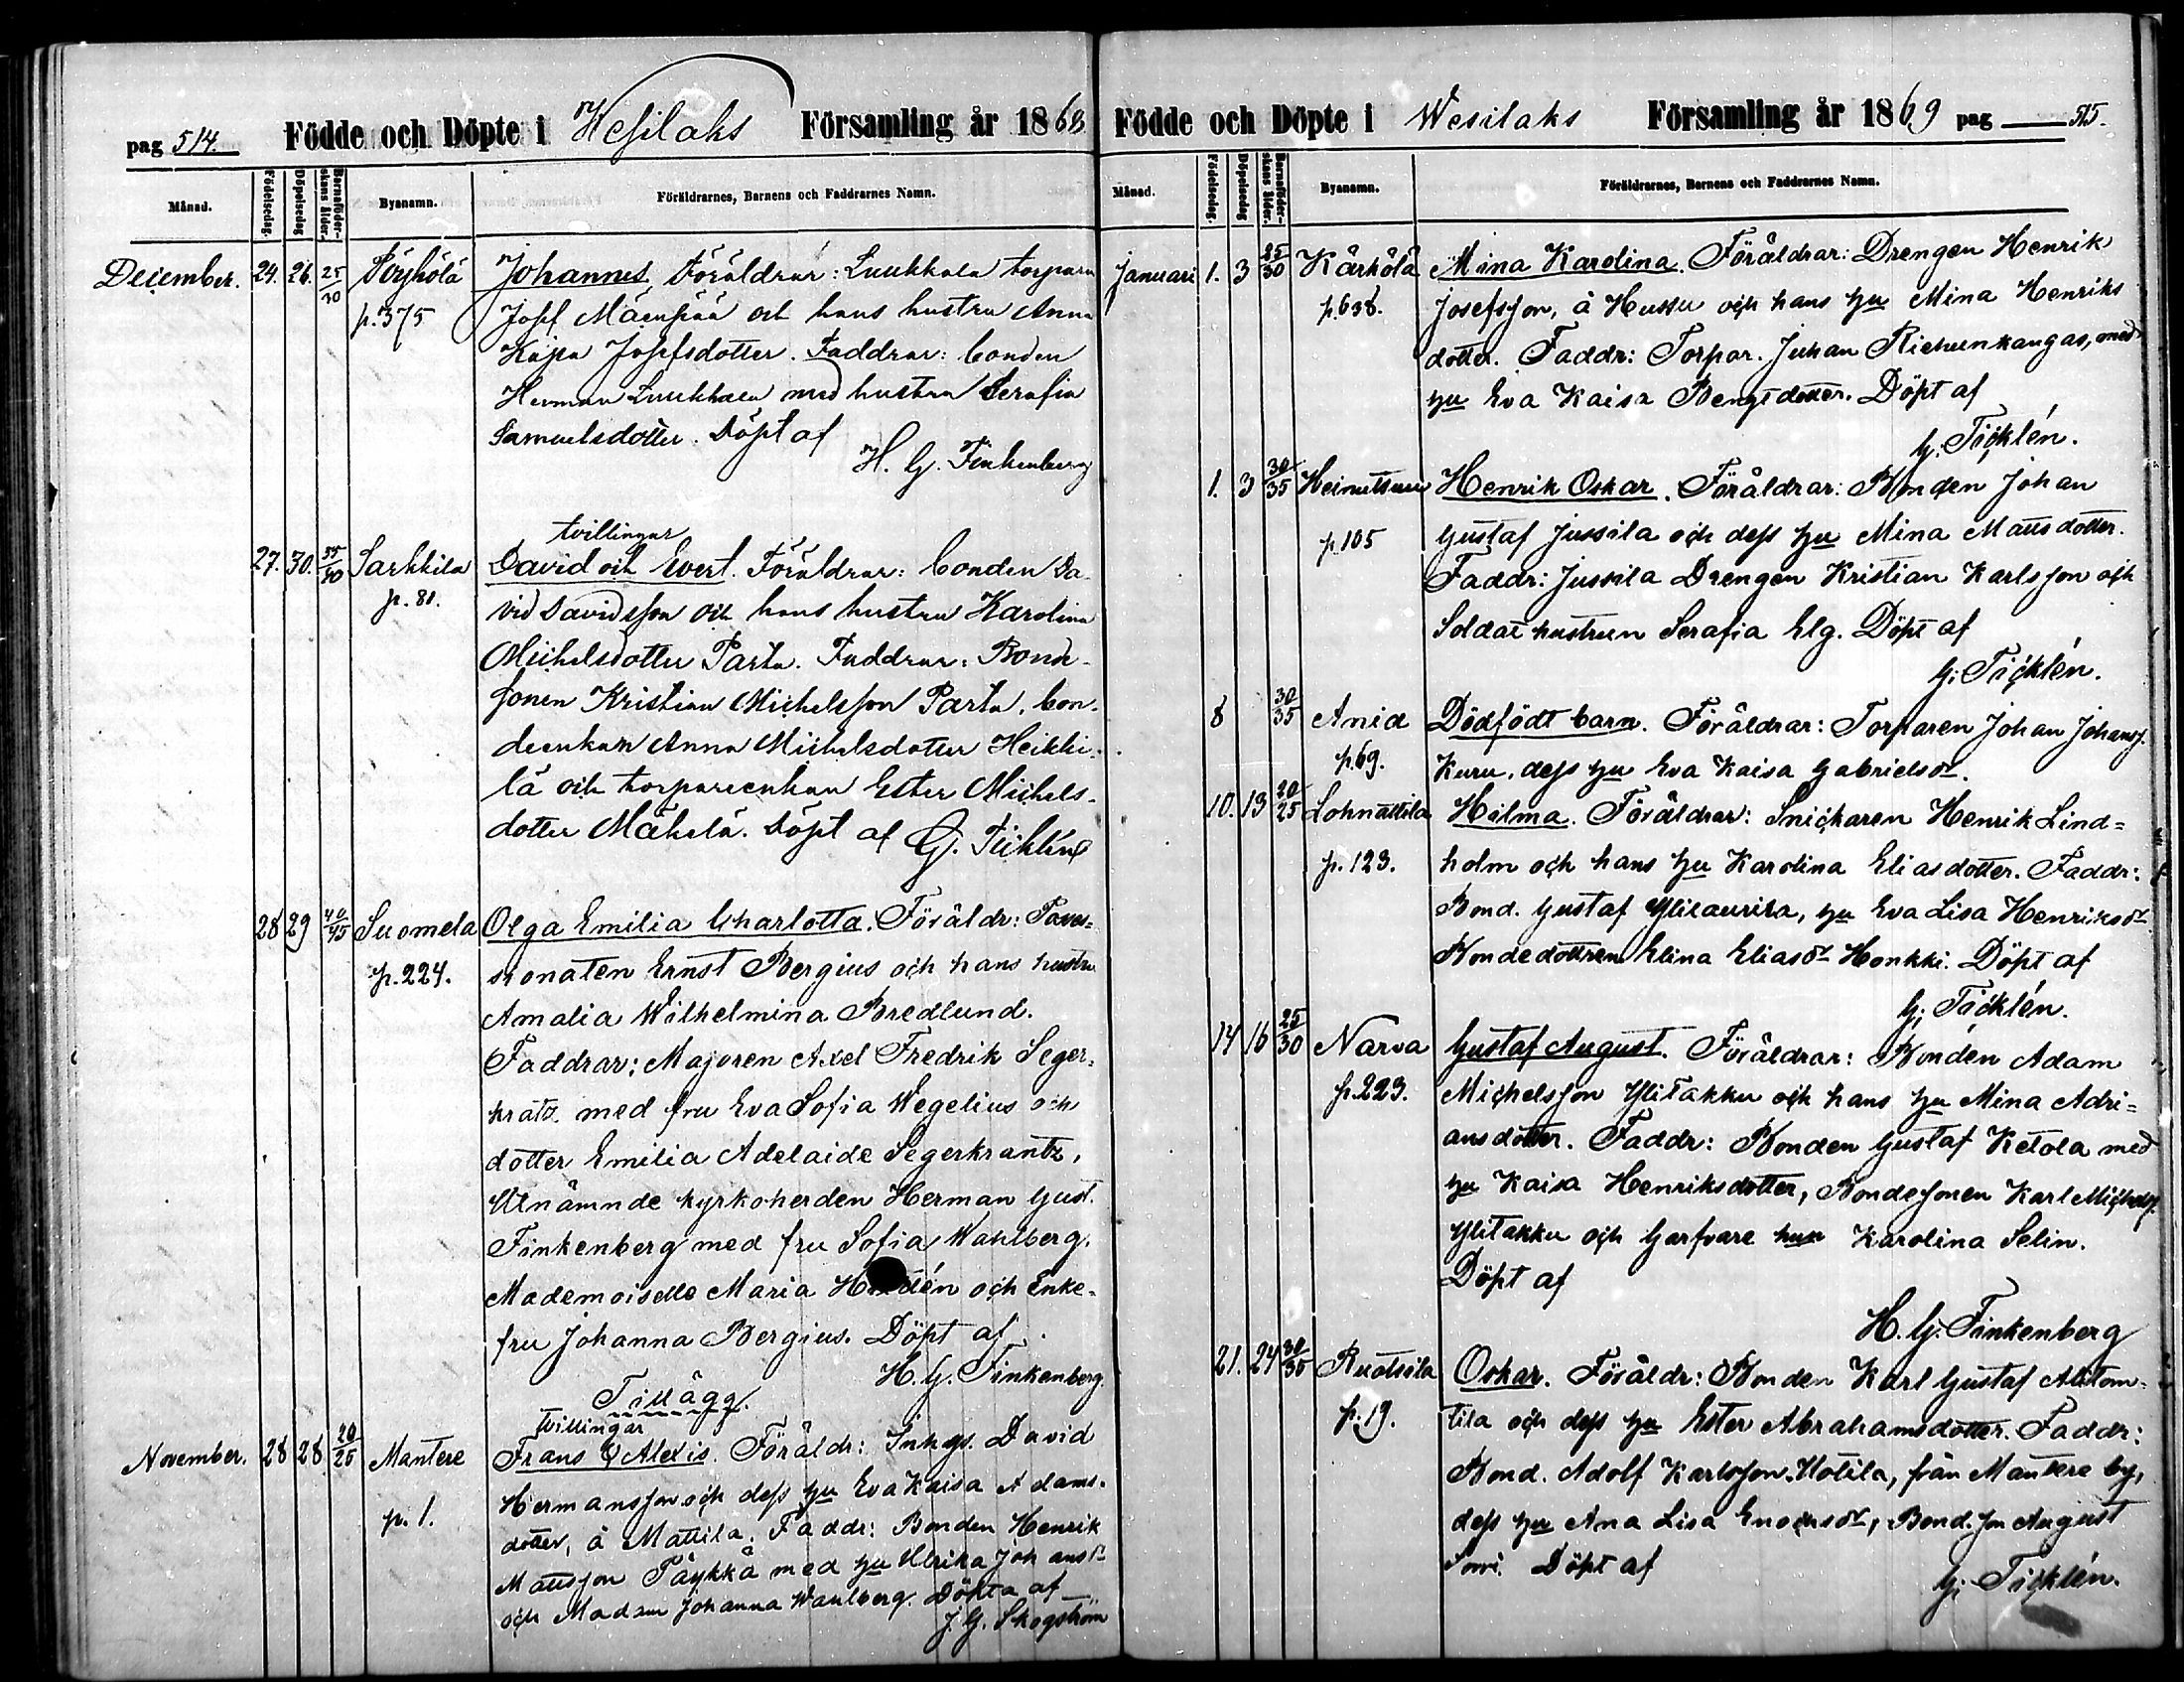 pag 514. Födde och Döpte i Wesilaks Församling år 1868
Månad. Födelsedag. Döpelsedag Barnaföderskans ålder. Byanamn. Föräldrarnes, Barnens och Faddrarnes Namn.
December. 24. 26. 25/30 Pöyhölä Johannes. Föräldrar: Luukkala torparn
p. 375 Josef Mäenpää och hans hustru Anna
Kajsa Josefsdotter. Faddrar: bonden
Herman Luukkala med hustru Serafia
Samuelsdotter. Döpt af
H. G. Finkenberg
tvillingar
27. 30. 35/40 Sarkkila David och Evert. Föräldrar: bonden Da-
p. 81. vid Davidsson och hans hustru Karolina
Michelsdotter Parta. Faddrar: Bonde-
sonen Kristian Michelsson Parta, bon-
deenkan Anna Michelsdotter Heikki-
lä och torpareenkan Ester Michels-
dotter Mäkelä. Döpt af G. Ticklén
28 29 40/45 Suomela Olga Emilia Charlotta. Föräldr: Poses-
p. 224. sionaten Ernst Bergius och hans hustru
Amalia Wilhelmina Bredlund.
Faddrar: Majoren Axel Fredrik Seger-
kratz med fru Eva Sofia Wegelius och
dotter Emilia Adelaide Segerkrantz,
Utnämnde kyrkoherden Herman Gust.
Finkenberg med fru Sofia Wahlberg,
Mademoiselle Maria och Enke-
fru Johanna Bergius. Döpt af
H. G. Finkenberg.
Tillägg.
Tvillingar
November. 28 28 20/25 Mantere Frans & Alexis. Föräldr: Inhys. David
p. 1. Hermansson och dess hu Eva Kaisa Adams-
dotter, å Mattila. Faddr: Bonden Henrik
Mattsson Päykkä med hu Ulrika Johansdr
och Madam Johanna Wahlberg. Döpta af
J. G. Skogström
Födde och Döpte i Wesilaks Församling år 1869 pag 515.
Månad. Födelsedag. Döpelsedag Barnaföderskans ålder. Byanamn. Föräldrarnes, Barnens och Faddrarnes Namn.
Januari 1. 3 25/30 Kärkölä Mina Karolina. Föräldrar: Drengen Henrik
p. 638. Josefsson, å Hussu och hans hu Mina Henriks
dotter. Faddr: Torpar. Juhan Riehunkangas, med
hu Eva Kaisa Bengtdotter. Döpt af
G. Ticklén.
1. 3 30/35 Heinutsuu Henrik Oskar. Föräldrar: Bonden Johan
p. 105 Gustaf Jussila och dess hu Mina Mattsdotter.
Faddr: Jussila Drengen Kristian Karlsson och
Soldat hustrun Serafia Elg. Döpt af
G. Ticklén.
8 30/35 Ania Dödfödt barn. Föräldrar: Torparen Johan Johanss.
p. 69. Kuru, dess hu Eva Kaisa Gabrielsdr.
10. 13 20/25 Lohnattila Hilma. Föräldrar: Snickaren Henrik Lind=
p. 123. holm och hans hu Karolina Eliasdotter. Faddr:
Bond. Gustaf Ylilaurila, hu Eva Lisa Henriksdr
Bondedottren Elina Eliasdr Honkki. Döpt af
G. Ticklén.
14 16 25/30 Narva Gustaf August. Föräldrar: Bonden Adam
p. 223. Michelsson Ylitakku och hans hu Mina Adri=
ansdotter. Faddr: Bonden Gustaf Ketola med
hu Kaisa Henriksdotter, Bondesonen Karl Michelss.
Ylitakku och Garfvare hun Karolina Selin.
Döpt af
H. G. Finkenberg
21. 24 30/35 Ruotsila Oskar. Föräldr: Bonden Karl Gustaf Alitom-
p. 19. tila och dess hu Ester Abrahamsdotter. Faddr:
Bond. Adolf Karlsson Uotila, från Mantere by,
dess hu Ana Lisa Enochsdr, Bond. son August
Döpt af
G. Ticklén.